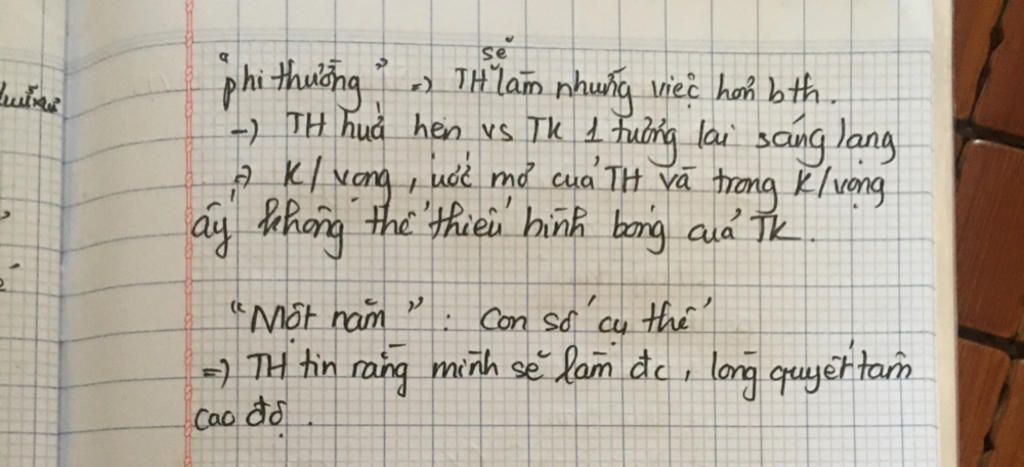 sẽ
"phi thường" => TH làm những việc hơn bth.
-> TH hứa hẹn vs TK 1 tương lai sáng lạng
=> K/vọng, ước mơ của TH và trong K/vọng
ấy không thể thiếu hình bóng của TK.
"Một năm" : Con số cụ thể
=> TH tin rằng mình sẽ làm đc, lòng quyết tâm
cao độ.